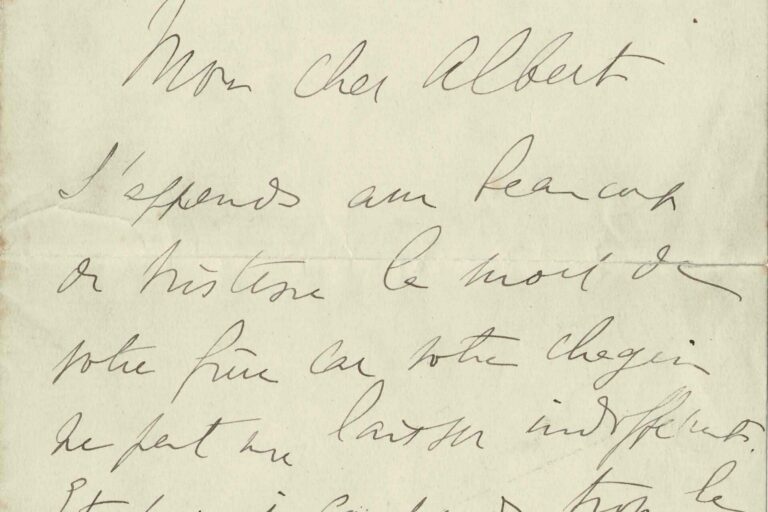 Mon cher Albert
J'apprends avec beaucoup
de tristesse la mort de
votre frère car votre chagrin
ne peut me laisser indifférent.
Et trop le